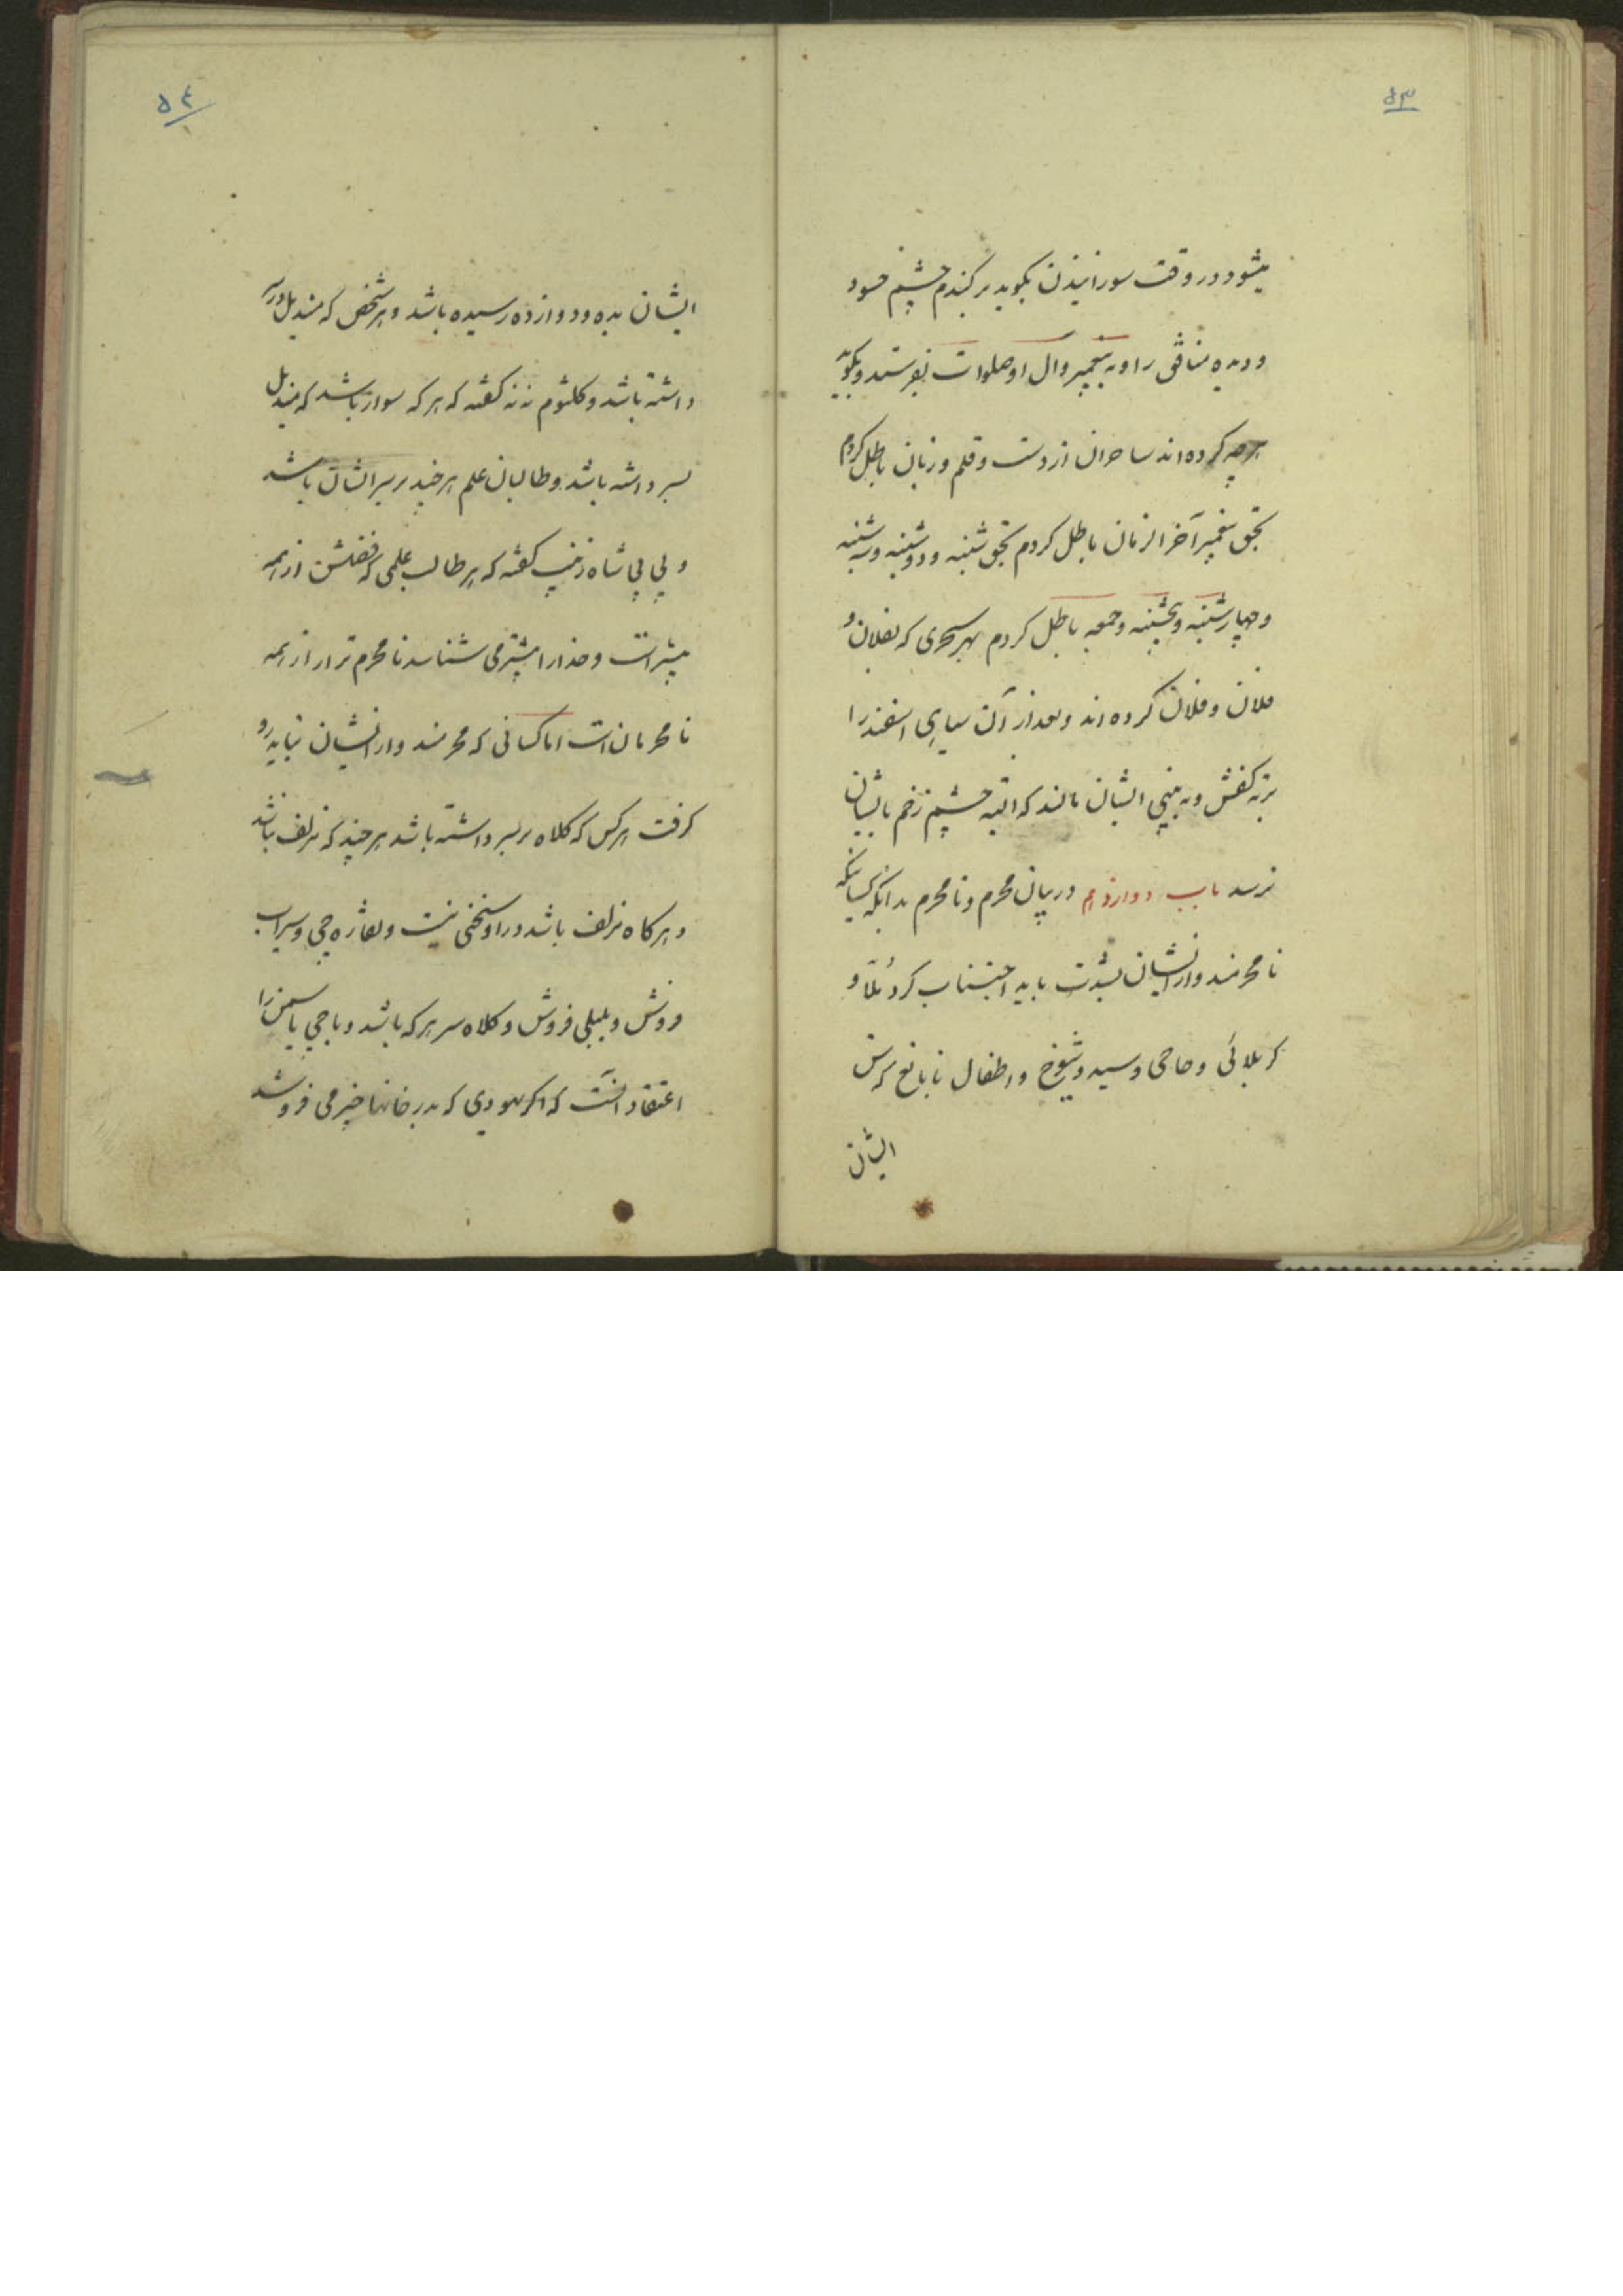 ۵۳
میشود در وقت سورانیدن بگوید برکندم چشم حسود
و دیده منافق را و به پیغمبر و آل او صلوات بفرستد و بگوید
هرچه کرده‌اند ساحران از دست و قلم و زبان باطل کردم
بحق پیغمبر آخر الزمان باطل کردم بحق شنبه و دوشنبه و سه شنبه
و چهارشنبه و پنجشنبه و جمعه باطل کردم بهر سحری که بفلان و
فلان و فلان کرده‌اند و بعد از آن سیاهی اسفند را
بر ته کفش و به بینی ایشان مالند که البته چشم زخم بایشان
نرسد باب دوازدهم در بیان محرم و نامحرم بدانکه کسانیکه
نامحرمند و از ایشان بشدت باید اجتناب کرد مُلّا و
کربلائی و حاجی و سید و شیوخ و اطفال نابالغ که سن
ایشان
۵۴
ایشان بده و دوازده رسیده باشد و هر شخص که مندیل در سر
داشته باشد و کلثوم ننه گفته که هر که سوار باشد که مندیل
بسر داشته باشد و طالبان علم هر چند بر سر ایشان باشد
و بی بی شاه زینب گفته که هر طالب علمی که فضلش از همه
بیشتر است و خدا را بیشتر می شناسد نامحرم تر او از همه
نامحرمان است اما کسانی که محرمند و از ایشان نباید رو
گرفت هر کس که کلاه بر سر داشته باشد هر چند که مزلف نباشد
و هر گاه مزلف باشد در او سخنی نیست و نقاره چی و سیراب
فروش و بلبلی فروش و کلاه سر هر که باشد و باجی یاسمن را
اعتقاد آنست که اگر یهودی که بدر خانها چیز می فروشد